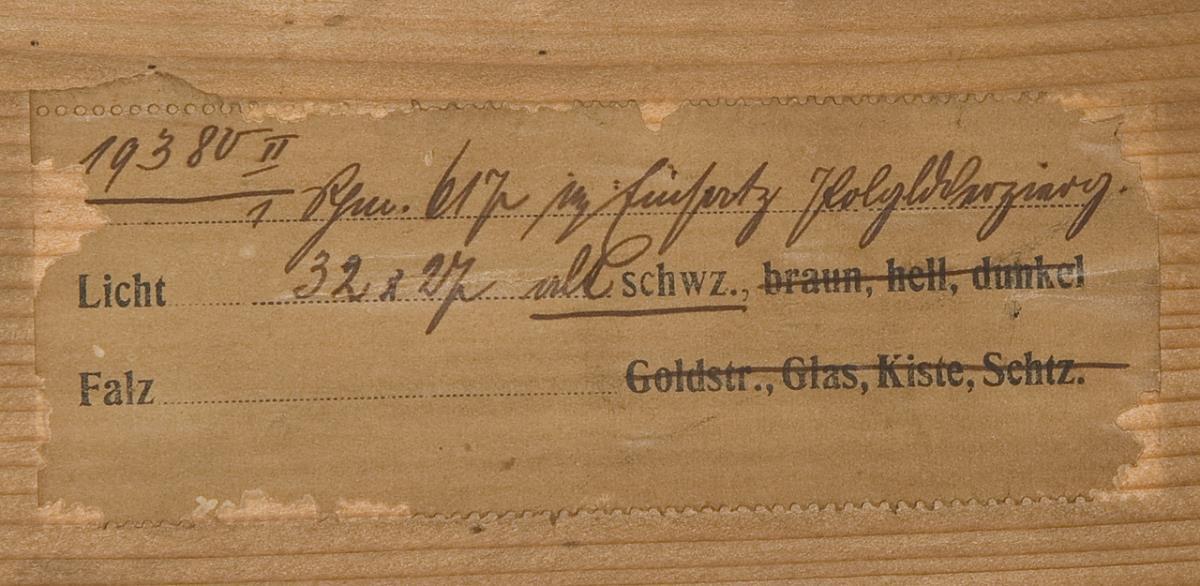 19380 II
1 Rhm. 617 m. Einsatz Polgldverzierg.
Licht 32 x 27 alt schwz., braun, hell, dunkel
Falz Goldstr., Glas, Kiste, Schtz.